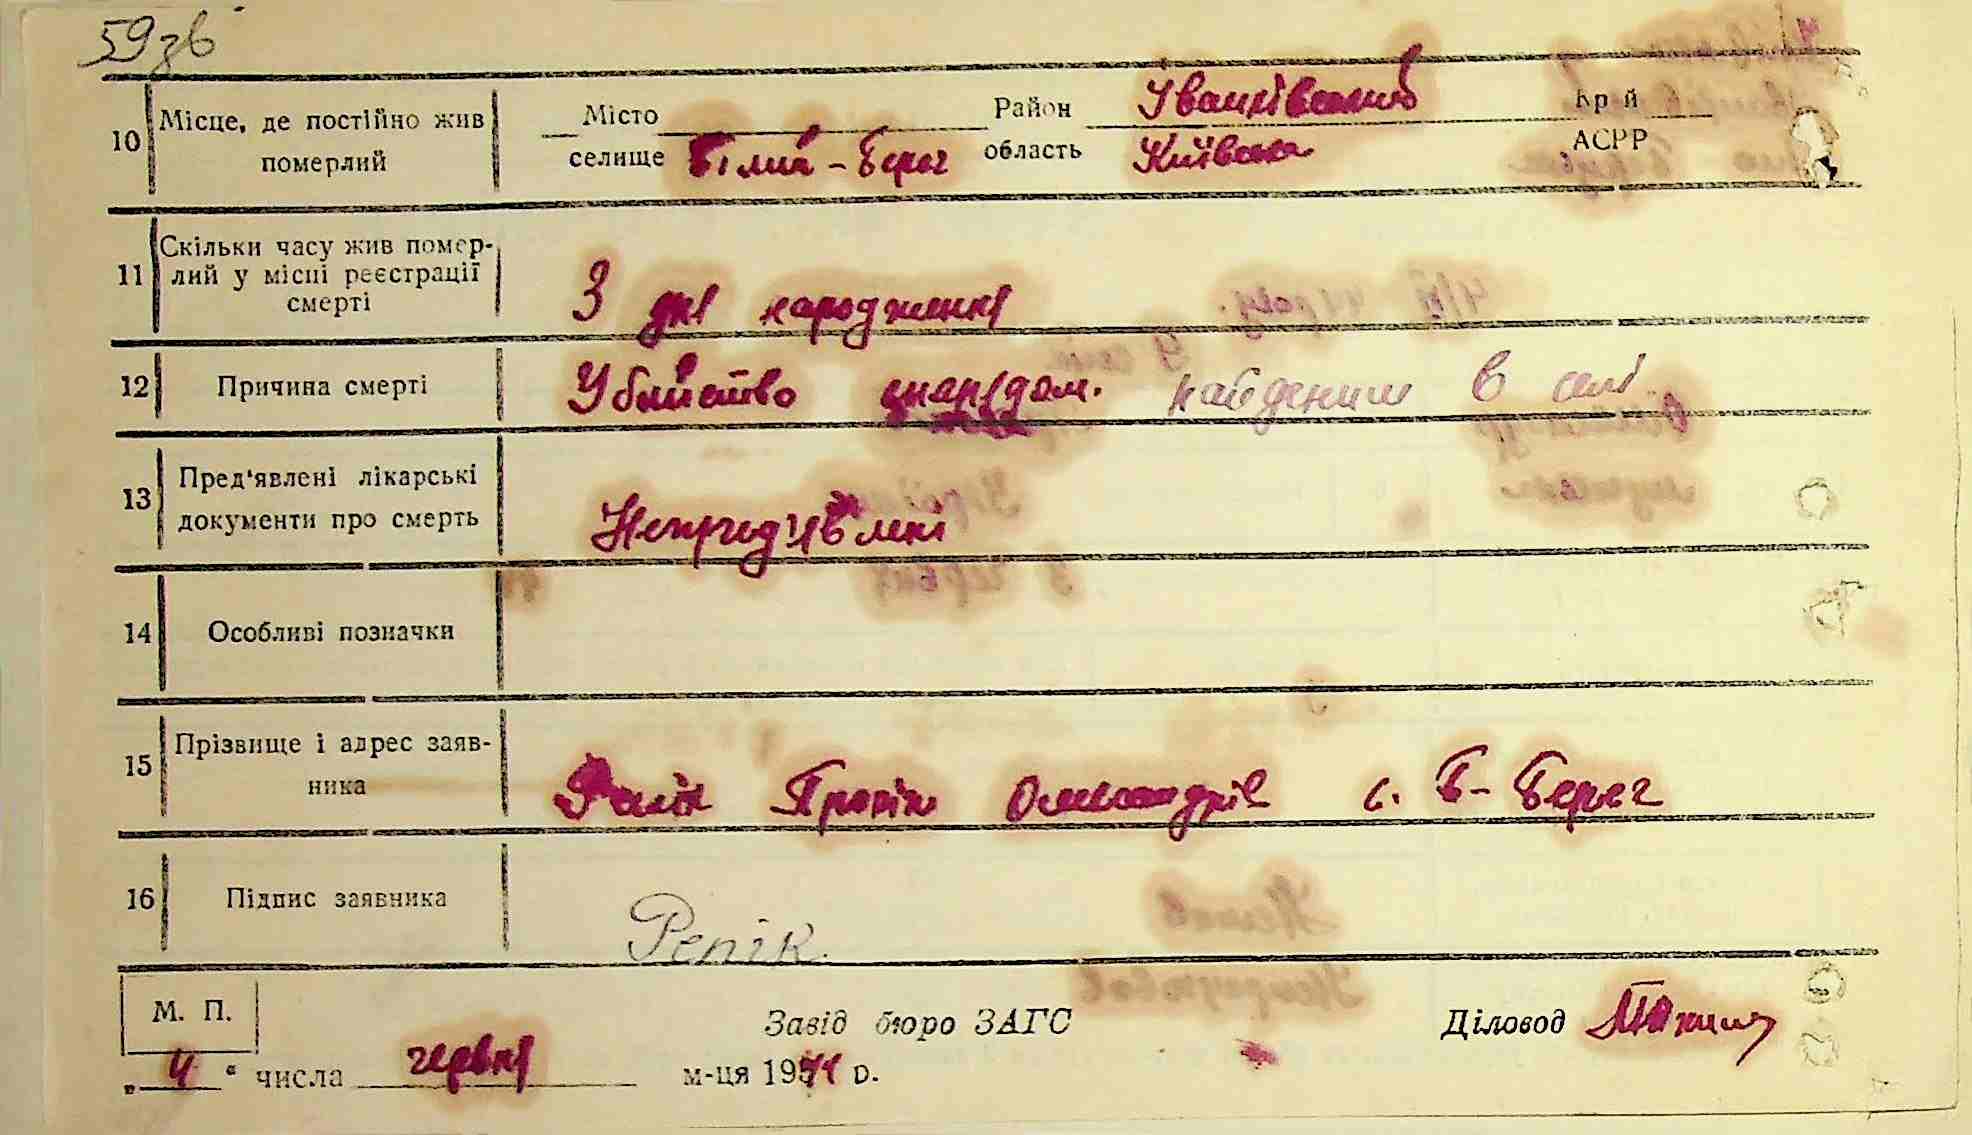 59 зв
10 Місце, де постійно жив померлий Місто Район Іванківський Край
селище Білий-Берег область Київська АСРР
11 Скільки часу жив помер-
лий у місці реєстрації
смерті З дні народженні
12 Причина смерті Убийство снарядом. найденим в селі
13 Пред'явлені лікарські
документи про смерть Непред'явлені
14 Особливі позначки
15 Прізвище і адрес заяв-
ника Репік Прокіп с. Б-Берег
16 Підпис заявника Репік.
М. П.
Завід бюро ЗАГС Діловод
„ 4 “ числа червня м-ця 1941 р.